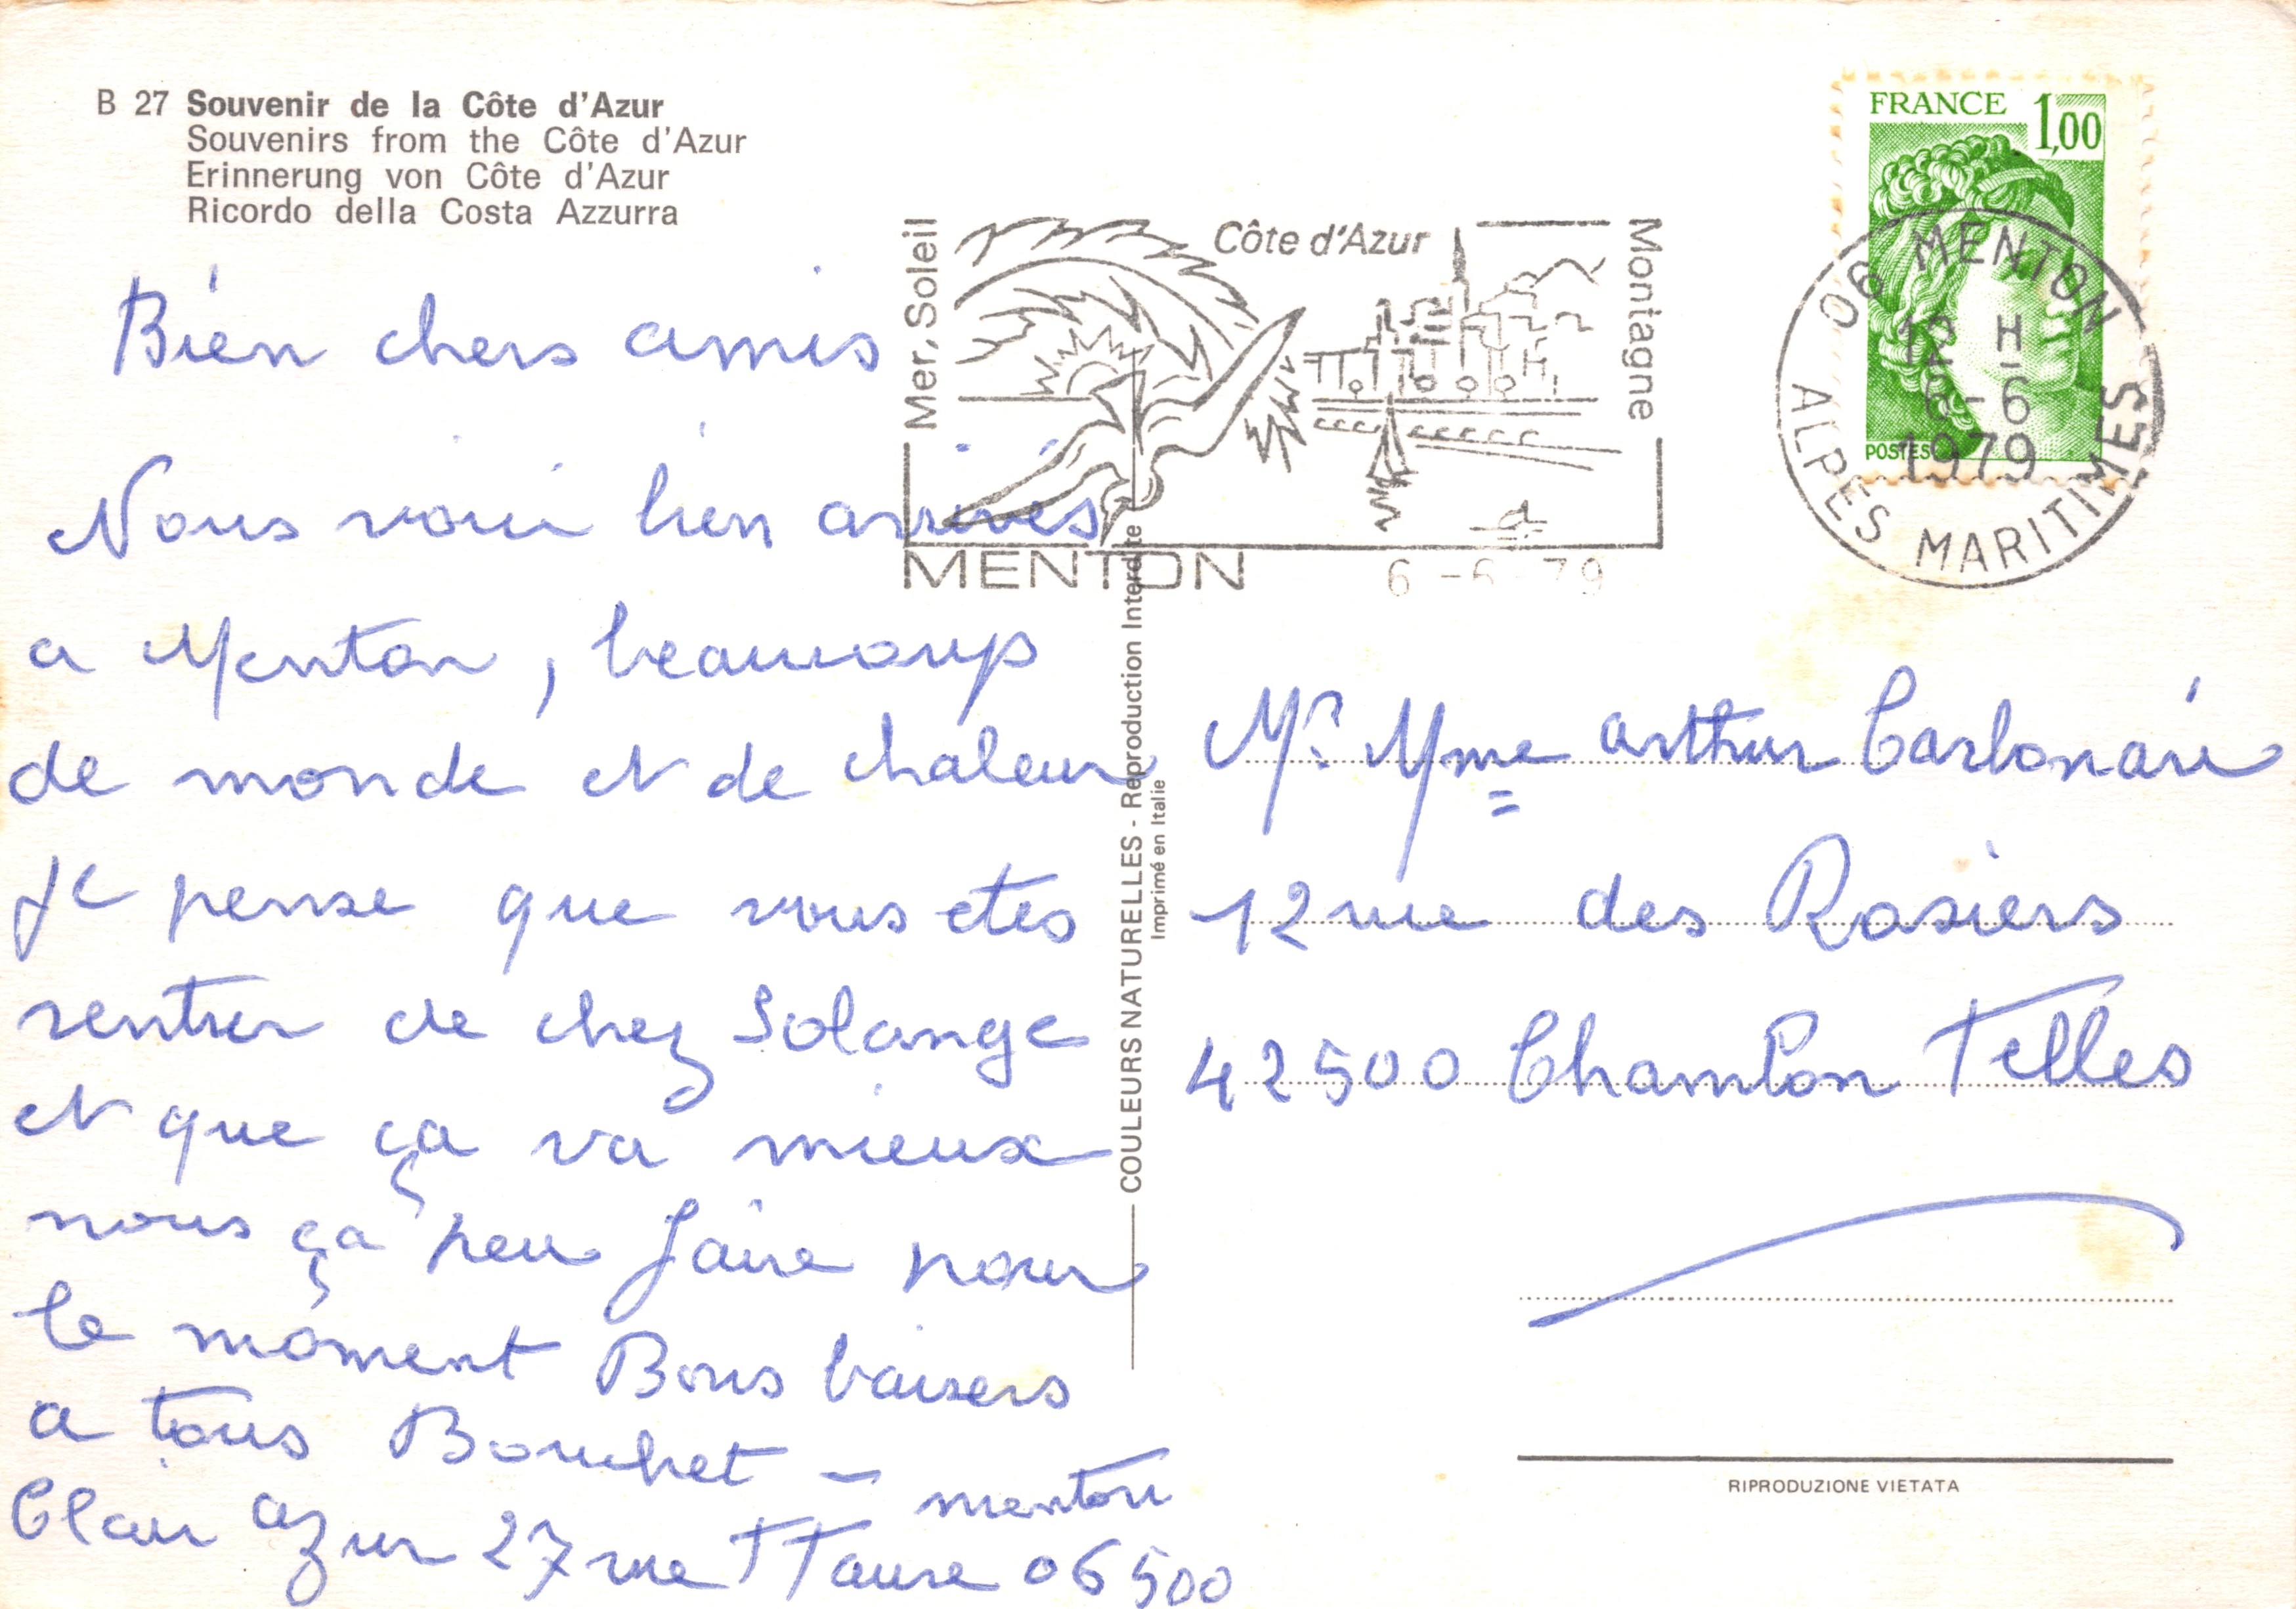 B 27 Souvenir de la Côte d'Azur
Souvenirs from the Côte d'Azur
Erinnerung von Côte d'Azur
Ricordo della Costa Azzurra
FRANCE 1,00
POSTES
06 MENTON
12 H
6-6
1979
ALPES MARITIMES
Mer, Soleil
Côte d'Azur
Montagne
MENTON
6 -6 -79
Bien chers amis
Nous voici bien arrivés
a Menton, beaucoup
de monde et de chaleur
Je pense que vous etes
rentrer de chez Solange
et que ça va mieux
nous ça peu faire pour
le moment Bons baisers
a tous Bouchet –
Clair azur 27 rue 06500
menton
COULEURS NATURELLES - Reproduction Interdite
Imprimé en Italie
Mr. Mme arthur Carbonari
12 rue des Rosiers
42500 Chambon
RIPRODUZIONE VIETATA